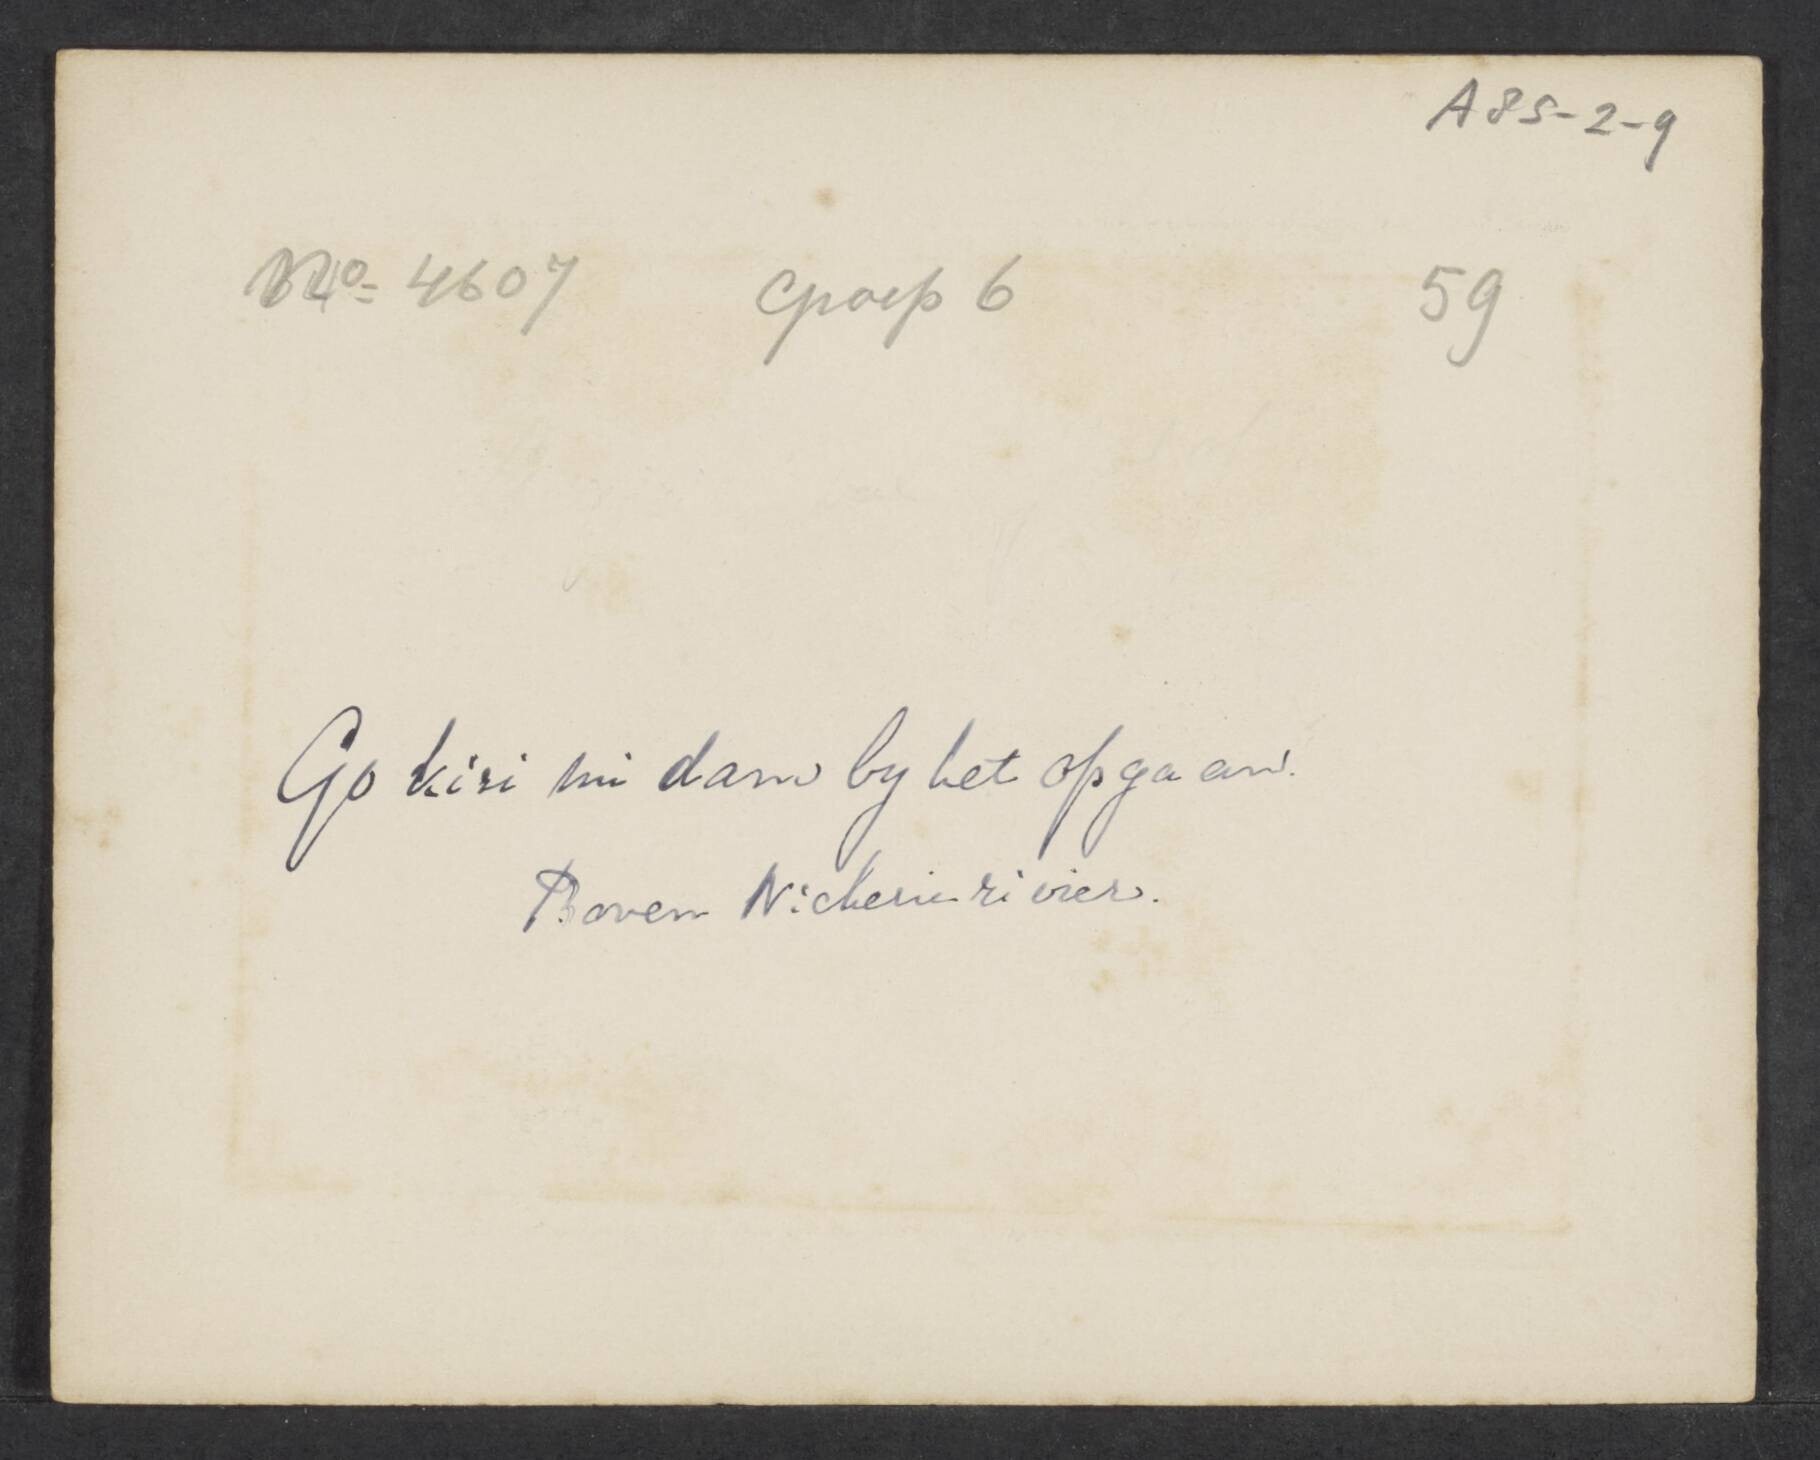 A85-2-9
No= 4607 Groep 6 59
Go kiri mi dam by het opgaan.
Boven Nickerie rivier.